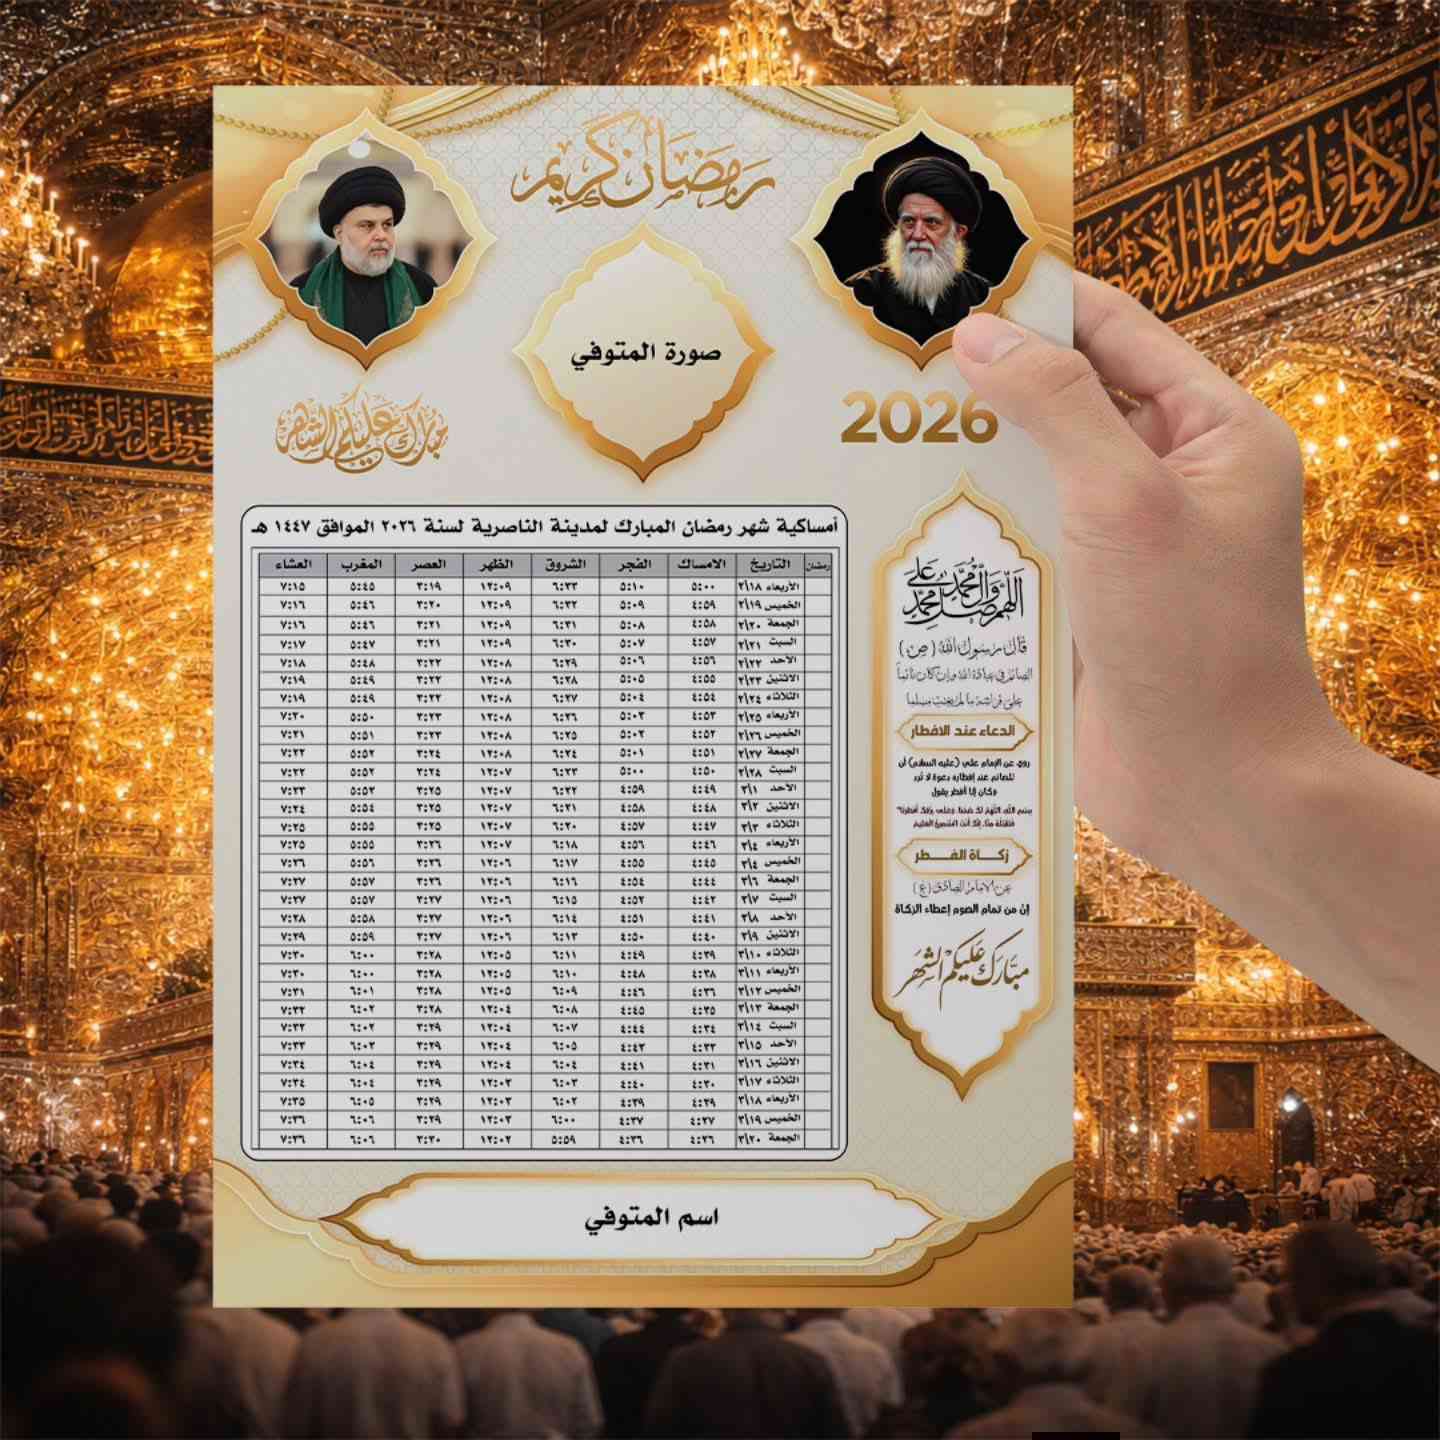 رمضان كريم
صورة المتوفي
مبارك عليكم الشهر
2026
أمساكية شهر رمضان المبارك لمدينة الناصرية لسنة ٢٠٢٦ الموافق ١٤٤٧ هـ
رمضان التاريخ الامساك الفجر الشروق الظهر العصر المغرب العشاء
الأربعاء ٢\١٨ ٥:٠٠ ٥:١٠ ٦:٣٣ ١٢:٠٩ ٣:١٩ ٥:٤٥ ٧:١٥
الخميس ٢\١٩ ٤:٥٩ ٥:٠٩ ٦:٣٢ ١٢:٠٩ ٣:٢٠ ٥:٤٦ ٧:١٦
الجمعة ٢\٢٠ ٤:٥٨ ٥:٠٨ ٦:٣١ ١٢:٠٩ ٣:٢١ ٥:٤٦ ٧:١٦
السبت ٢\٢١ ٤:٥٧ ٥:٠٧ ٦:٣٠ ١٢:٠٩ ٣:٢١ ٥:٤٧ ٧:١٧
الأحد ٢\٢٢ ٤:٥٦ ٥:٠٦ ٦:٢٩ ١٢:٠٨ ٣:٢٢ ٥:٤٨ ٧:١٨
الاثنين ٢\٢٣ ٤:٥٥ ٥:٠٥ ٦:٢٨ ١٢:٠٨ ٣:٢٢ ٥:٤٩ ٧:١٩
الثلاثاء ٢\٢٤ ٤:٥٤ ٥:٠٤ ٦:٢٧ ١٢:٠٨ ٣:٢٢ ٥:٤٩ ٧:١٩
الأربعاء ٢\٢٥ ٤:٥٣ ٥:٠٣ ٦:٢٦ ١٢:٠٨ ٣:٢٣ ٥:٥٠ ٧:٢٠
الخميس ٢\٢٦ ٤:٥٢ ٥:٠٢ ٦:٢٥ ١٢:٠٨ ٣:٢٣ ٥:٥١ ٧:٢١
الجمعة ٢\٢٧ ٤:٥١ ٥:٠١ ٦:٢٤ ١٢:٠٨ ٣:٢٤ ٥:٥٢ ٧:٢٢
السبت ٢\٢٨ ٤:٥٠ ٥:٠٠ ٦:٢٣ ١٢:٠٧ ٣:٢٤ ٥:٥٢ ٧:٢٢
الأحد ٣\١ ٤:٤٩ ٤:٥٩ ٦:٢٢ ١٢:٠٧ ٣:٢٥ ٥:٥٣ ٧:٢٣
الاثنين ٣\٢ ٤:٤٨ ٤:٥٨ ٦:٢١ ١٢:٠٧ ٣:٢٥ ٥:٥٤ ٧:٢٤
الثلاثاء ٣\٣ ٤:٤٧ ٤:٥٧ ٦:٢٠ ١٢:٠٧ ٣:٢٥ ٥:٥٥ ٧:٢٥
الأربعاء ٣\٤ ٤:٤٦ ٤:٥٦ ٦:١٨ ١٢:٠٧ ٣:٢٦ ٥:٥٥ ٧:٢٥
الخميس ٣\٤ ٤:٤٥ ٤:٥٥ ٦:١٧ ١٢:٠٦ ٣:٢٦ ٥:٥٦ ٧:٢٦
الجمعة ٣\٦ ٤:٤٤ ٤:٥٤ ٦:١٦ ١٢:٠٦ ٣:٢٦ ٥:٥٧ ٧:٢٧
السبت ٣\٧ ٤:٤٢ ٤:٥٢ ٦:١٥ ١٢:٠٦ ٣:٢٧ ٥:٥٧ ٧:٢٧
الأحد ٣\٨ ٤:٤١ ٤:٥١ ٦:١٤ ١٢:٠٦ ٣:٢٧ ٥:٥٨ ٧:٢٨
الاثنين ٣\٩ ٤:٤٠ ٤:٥٠ ٦:١٣ ١٢:٠٦ ٣:٢٧ ٥:٥٩ ٧:٢٩
الثلاثاء ٣\١٠ ٤:٣٩ ٤:٤٩ ٦:١١ ١٢:٠٥ ٣:٢٨ ٦:٠٠ ٧:٣٠
الأربعاء ٣\١١ ٤:٣٨ ٤:٤٨ ٦:١٠ ١٢:٠٥ ٣:٢٨ ٦:٠٠ ٧:٣٠
الخميس ٣\١٢ ٤:٣٦ ٤:٤٦ ٦:٠٩ ١٢:٠٥ ٣:٢٨ ٦:٠١ ٧:٣١
الجمعة ٣\١٣ ٤:٣٥ ٤:٤٥ ٦:٠٨ ١٢:٠٤ ٣:٢٨ ٦:٠٢ ٧:٣٢
السبت ٣\١٤ ٤:٣٤ ٤:٤٤ ٦:٠٧ ١٢:٠٤ ٣:٢٩ ٦:٠٢ ٧:٣٢
الأحد ٣\١٥ ٤:٣٣ ٤:٤٣ ٦:٠٥ ١٢:٠٤ ٣:٢٩ ٦:٠٣ ٧:٣٣
الاثنين ٣\١٦ ٤:٣١ ٤:٤١ ٦:٠٤ ١٢:٠٤ ٣:٢٩ ٦:٠٤ ٧:٣٤
الثلاثاء ٣\١٧ ٤:٣٠ ٤:٤٠ ٦:٠٣ ١٢:٠٣ ٣:٢٩ ٦:٠٤ ٧:٣٤
الأربعاء ٣\١٨ ٤:٢٩ ٤:٣٩ ٦:٠٢ ١٢:٠٣ ٣:٢٩ ٦:٠٥ ٧:٣٥
الخميس ٣\١٩ ٤:٢٧ ٤:٣٧ ٦:٠٠ ١٢:٠٣ ٣:٢٩ ٦:٠٦ ٧:٣٦
الجمعة ٣\٢٠ ٤:٢٦ ٤:٣٦ ٥:٥٩ ١٢:٠٢ ٣:٣٠ ٦:٠٦ ٧:٣٦
اللهم صل على محمد وآل محمد
قال رسول الله (ص)
الصائم في عبادة الله وإن كان نائماً
على فراشه ما لم يغتب مسلما
الدعاء عند الافطار
روي عن الإمام علي (عليه السلام) أن
للصائم عند إفطاره دعوة لا ترد
وكان إذا أفطر يقول
بسم الله اللهم لك صمنا وعلى رزقك أفطرنا
فتقبله منا، إنك أنت السميع العليم
زكــاة الفــطر
عن الامام الصادق (ع)
إن من تمام الصوم إعطاء الزكاة
مبارك عليكم الشهر
اسم المتوفي